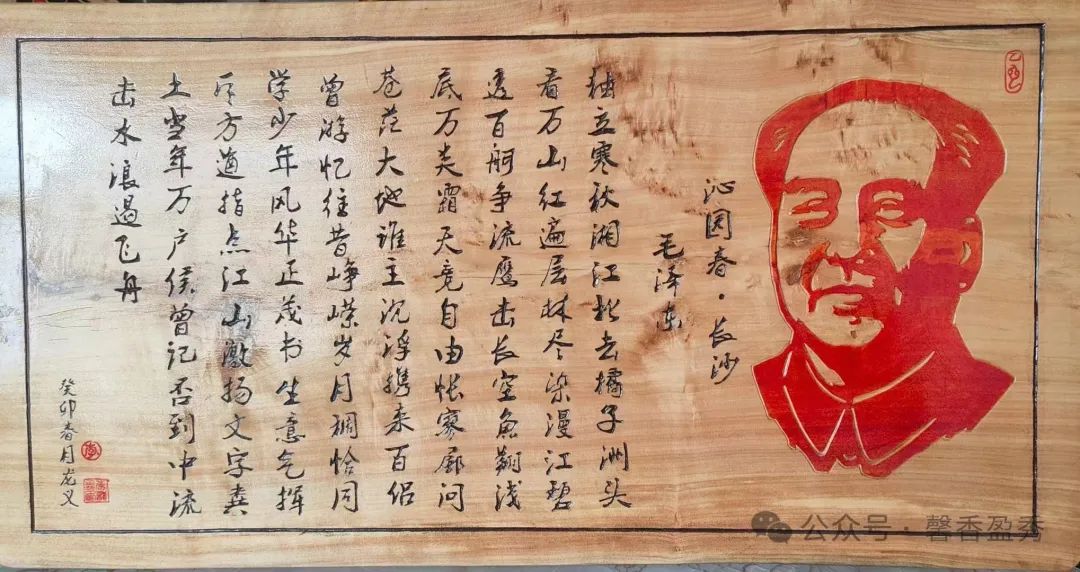 沁园春·长沙
毛泽东
独立寒秋湘江北去橘子洲头
看万山红遍层林尽染漫江碧
透百舸争流鹰击长空鱼翔浅
底万类霜天竞自由怅寥廓问
苍茫大地谁主沉浮携来百侣
曾游忆往昔峥嵘岁月稠恰同
学少年风华正茂书生意气挥
斥方遒指点江山激扬文字粪
土当年万户侯曾记否到中流
击水浪遏飞舟
癸卯春月龙义
公众号·馨香盈秀